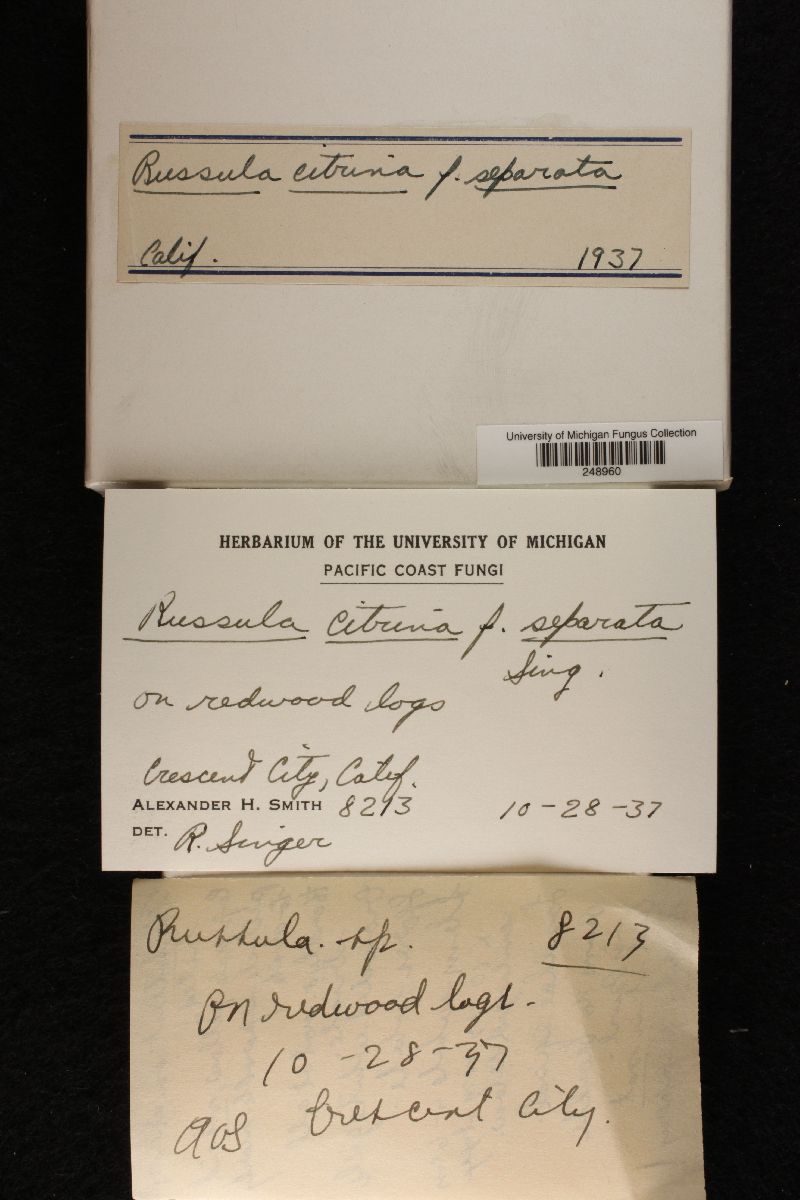 Russula citrina f. separata
Calif. 1937
University of Michigan Fungus Collection
248960
HERBARIUM OF THE UNIVERSITY OF MICHIGAN
PACIFIC COAST FUNGI
Russula citrina f. separata
Sing.
on redwood logs
Crescent City, Calif.
ALEXANDER H. SMITH 8213 10-28-37
DET. R. Singer
Russula. sp. 8213
On redwood logs.
10-28-37
Crescent City.